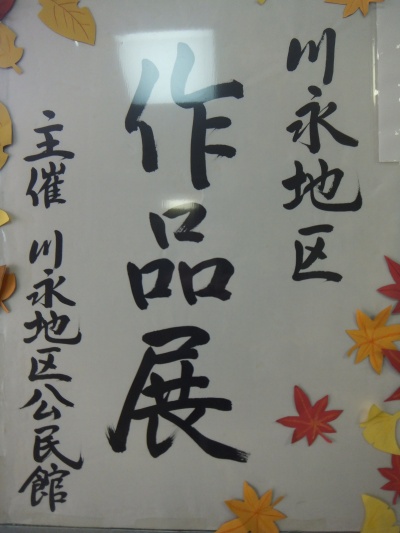 川永地区
作品展
主催 川永地区公民館